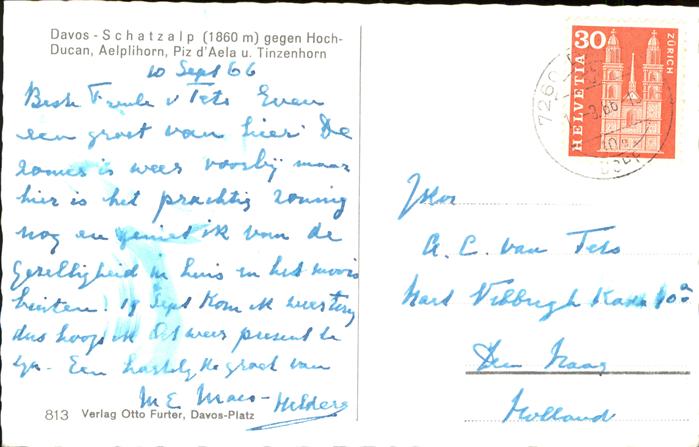 Davos - Schatzalp (1860 m) gegen Hoch-
Ducan, Aelplihorn, Piz d'Aela u. Tinzenhorn
10 Sept 66
Beste Freule v Tets Even
een groet van hier. De
zomer is weer voorbij maar
hier is het prachtig zonnig
nog en geniet ik van de
gezelligheid in huis en het moois
buiten! 19 Sept kom ik weer terug
dus hoop ik dat weer present te
zijn. Een hartelijke groet van
M E Maas-Helders
813 Verlag Otto Furter, Davos-Platz
HELVETIA
30
ZÜRICH
7260
DORF
A. C. van Tets
10a
Den Haag
Holland